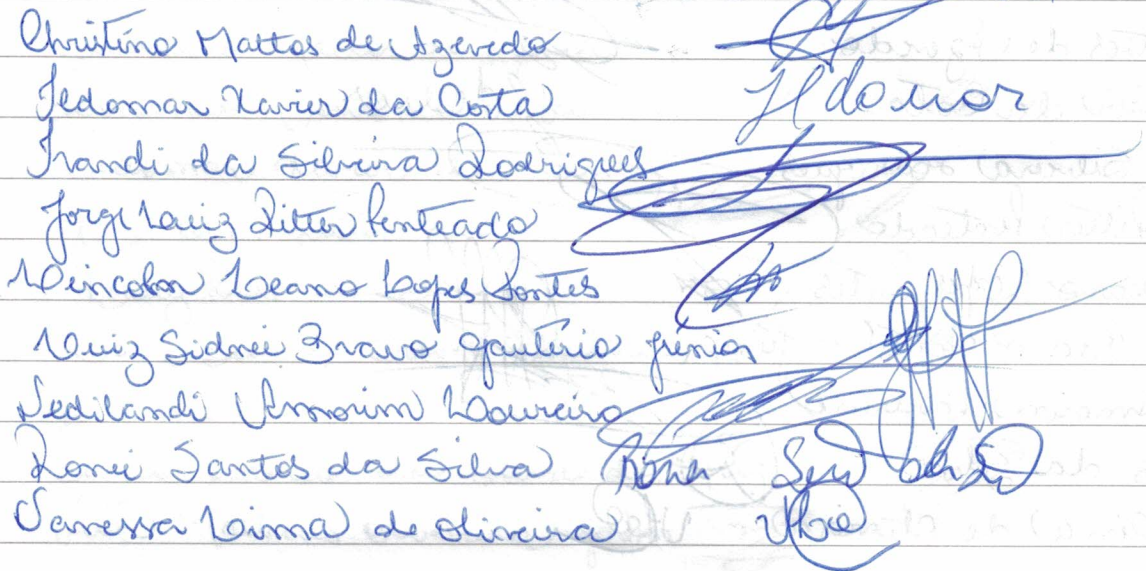 Christino Mattos de Azevedo
Jedomar Xavier da Costa Jldomar
Irandi da Silveira Rodrigues
Jorge Luiz Ritter Penteado
Lincolon Leano Lopes Pontes
Luiz Sidnei Bravo Gautério Júnior
Nedilandi Amorim Loureiro
Ronei Santos da Silva
Vanessa Lima de Oliveira